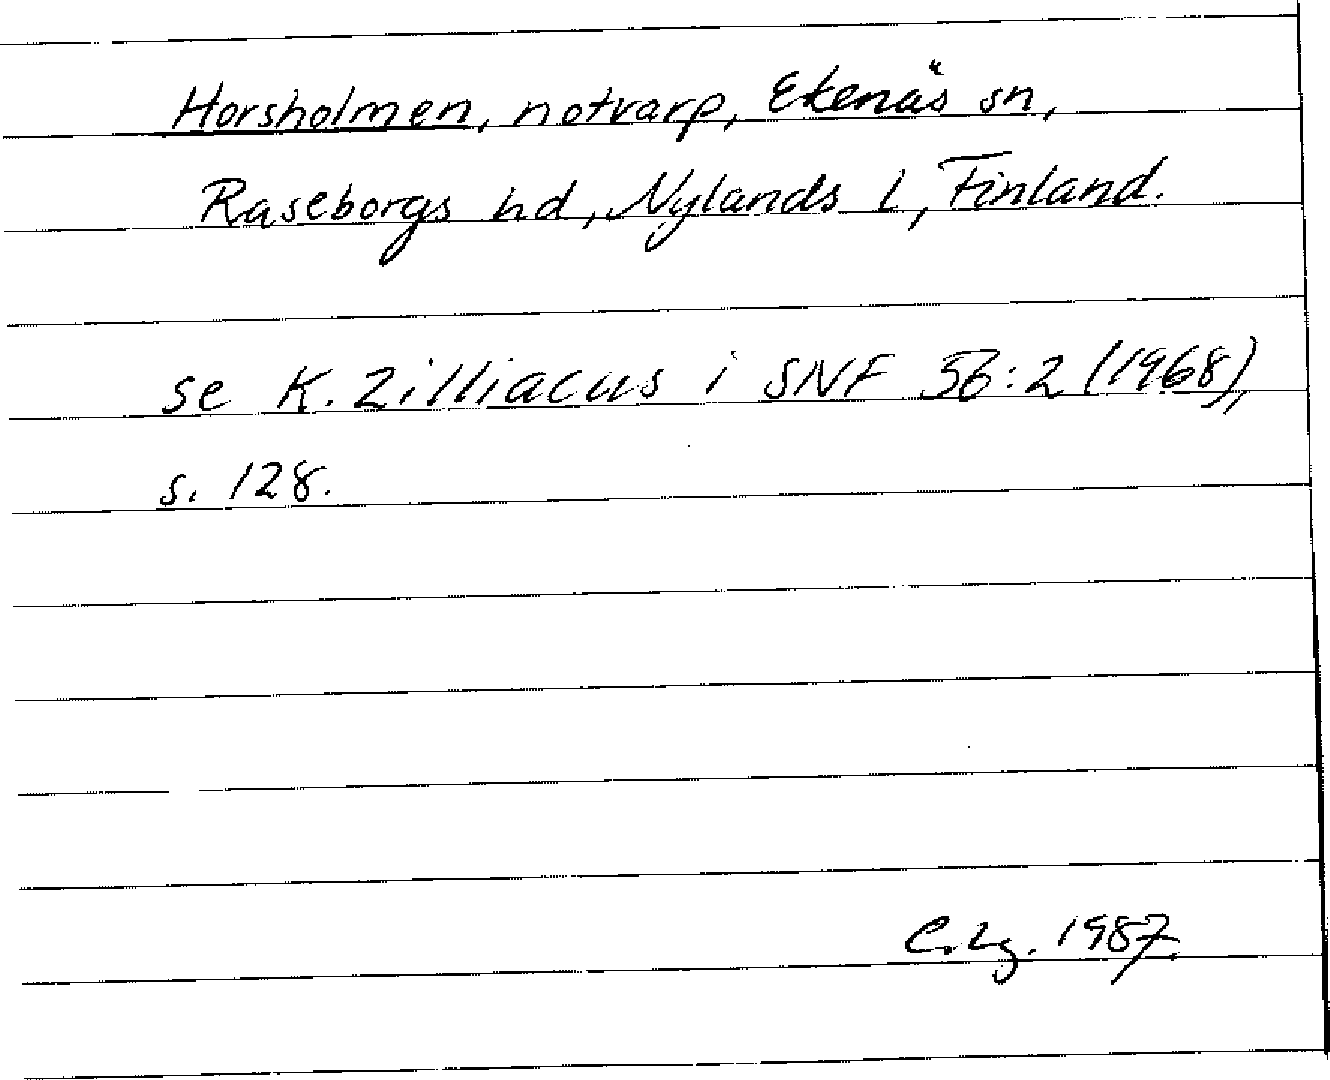 Horsholmen, notvarp, Ekenäs sn,
Raseborgs hd, Nylands l, Finland.
se K. Zilliacus i SNF 56:2 (1968),
s. 128.
C. Lg. 1987.